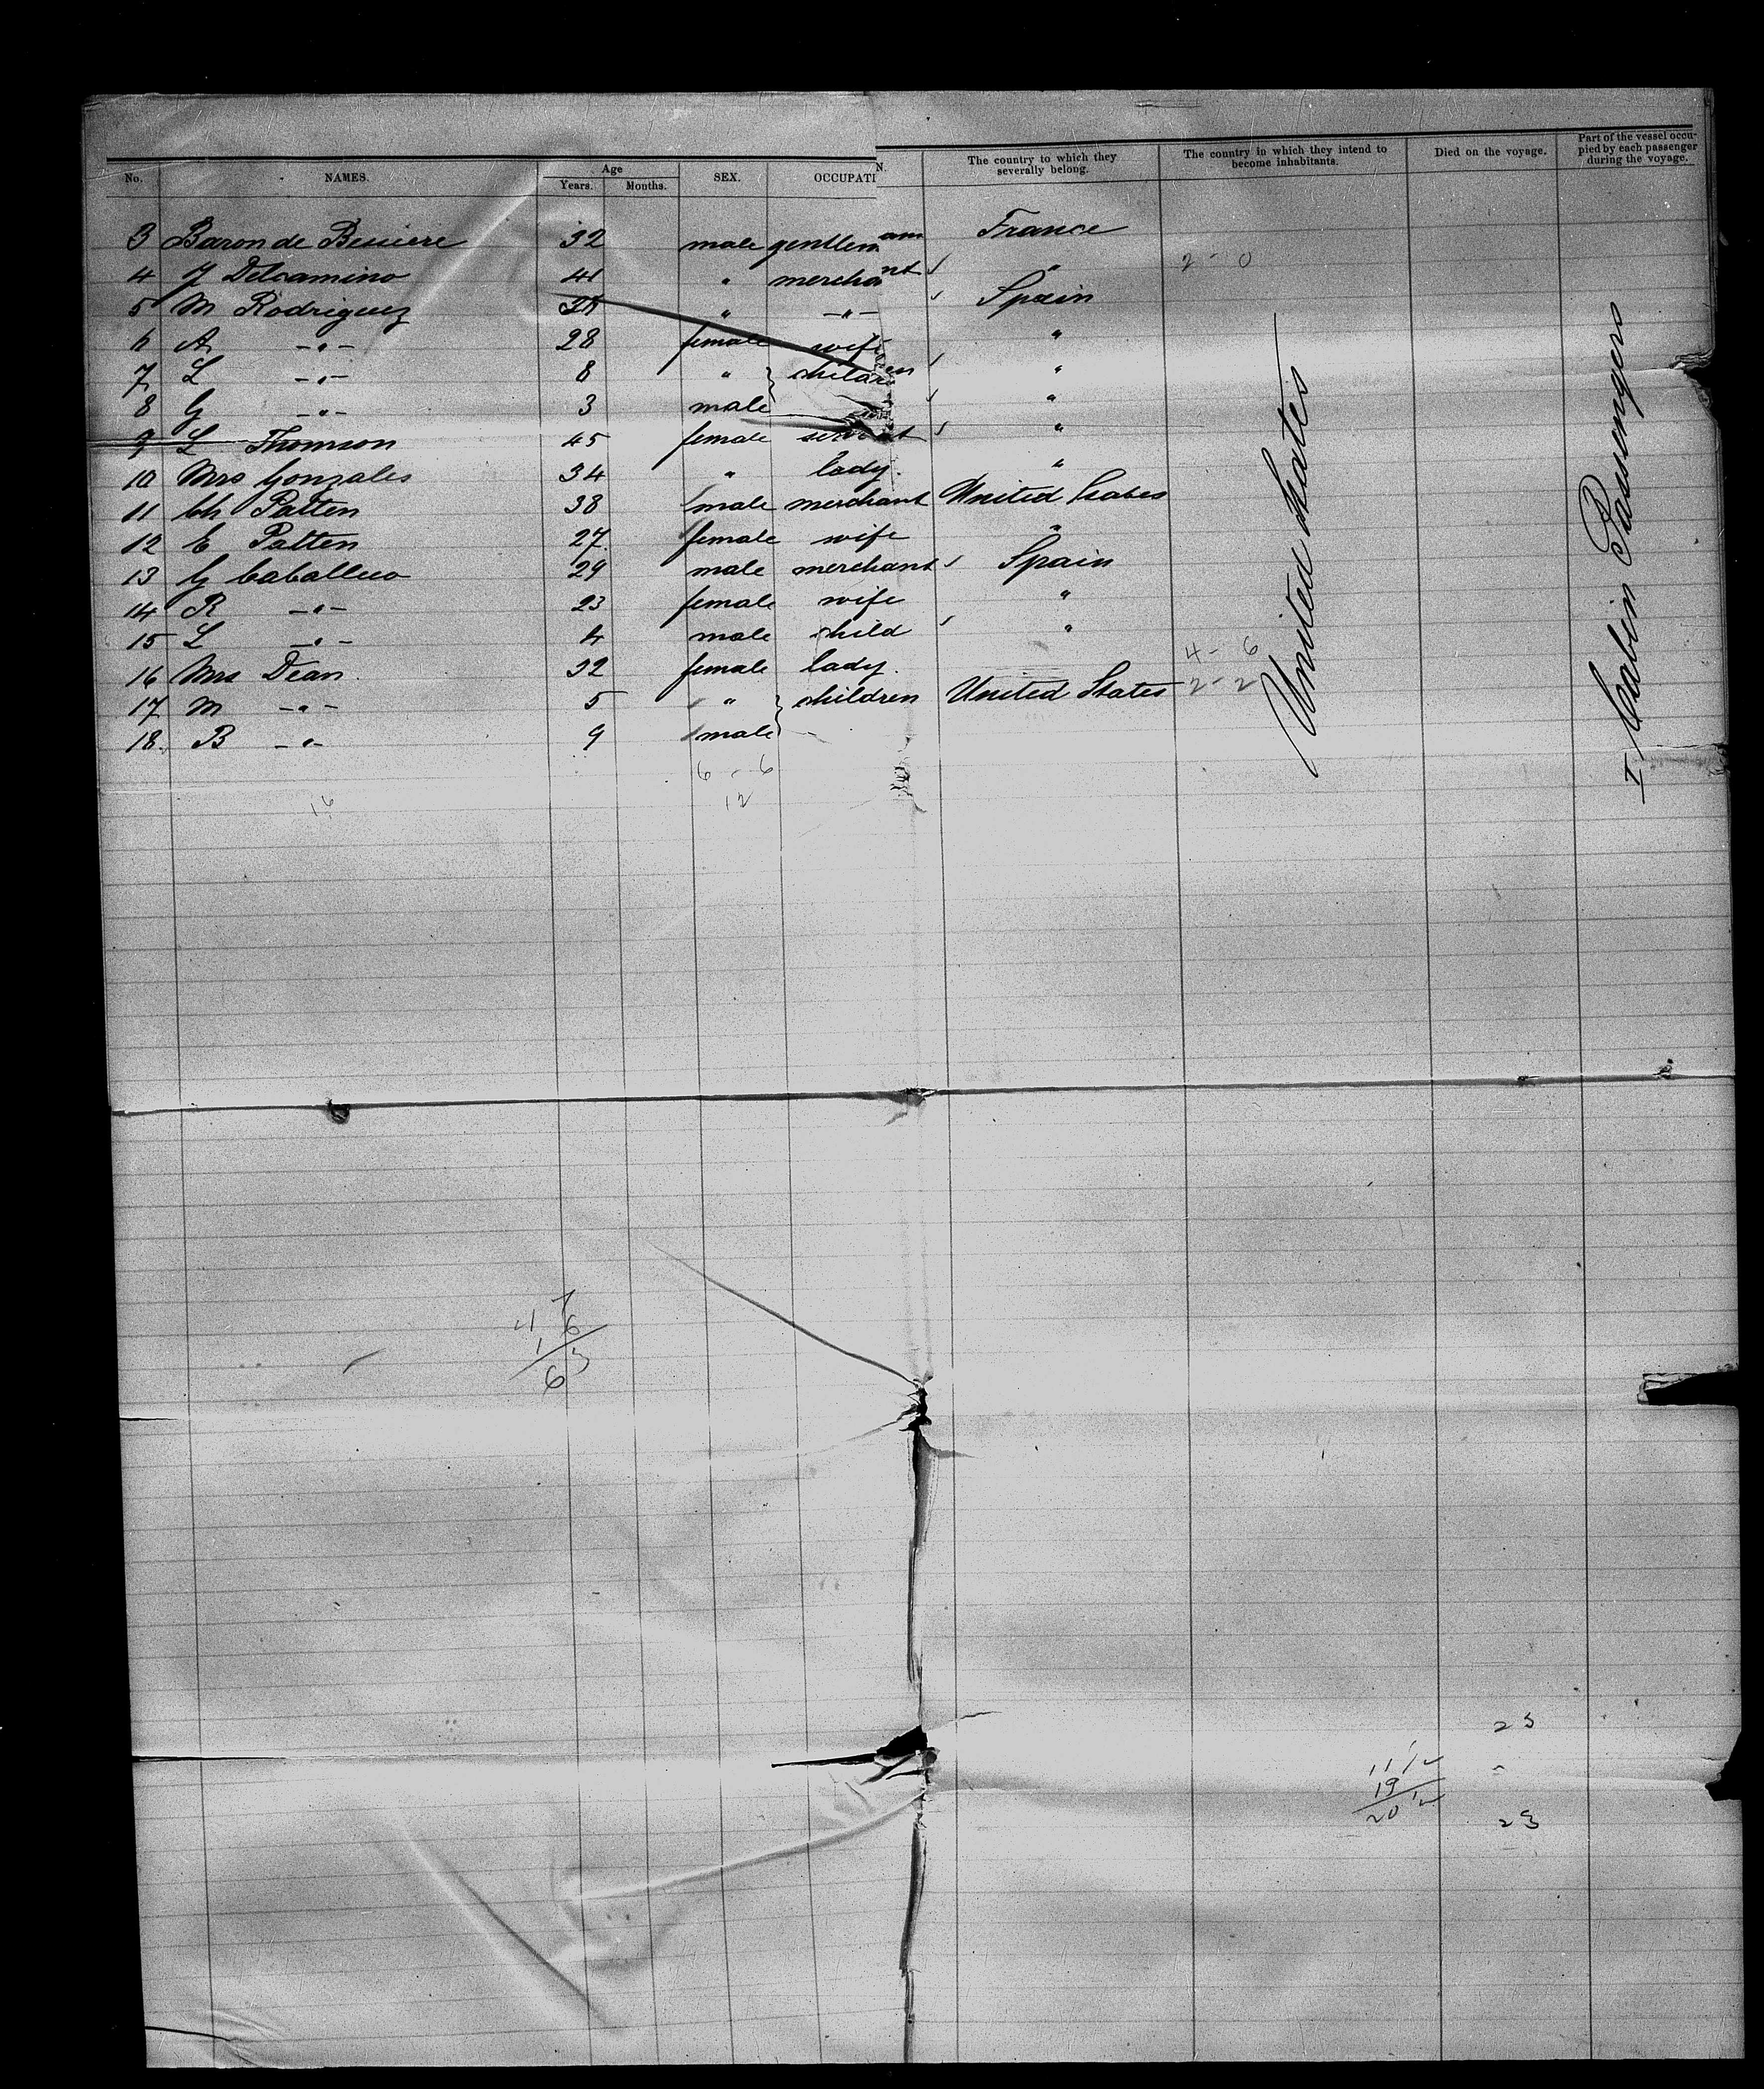 No. NAMES. Age Years. Months. SEX. OCCUPATI N. The country to which they severally belong. The country in which they intend to become inhabitants. Died on the voyage. Part of the vessel occu-pied by each passenger during the voyage.
3 Baron de Bessiere 32 male gentleman France
4 J Delcamino 41 " merchant " 2 - 0
5 M Rodriguez " -"- Spain
6 A -"- 28 female wife "
7 L -"- 8 " children "
8 G -"- 3 male "
9 L Thomson 45 female servant "
10 Mrs Gonzales 34 " lady. "
11 Ch Patten 38 male merchant United States
12 E Patten 27 female wife "
13 G Caballero 29 male merchant Spain
14 R -"- 23 female wife "
15 L -"- 4 male child "
16 Mrs Dean. 32 female lady. 4 - 6
17 M -"- 5 " children United States 2 - 2
18. B -"- 9 male
United States
I Cabin Passengers
6 - 6
16 12
7
4 6
1
6 3
23
11 12
19
20 12
23